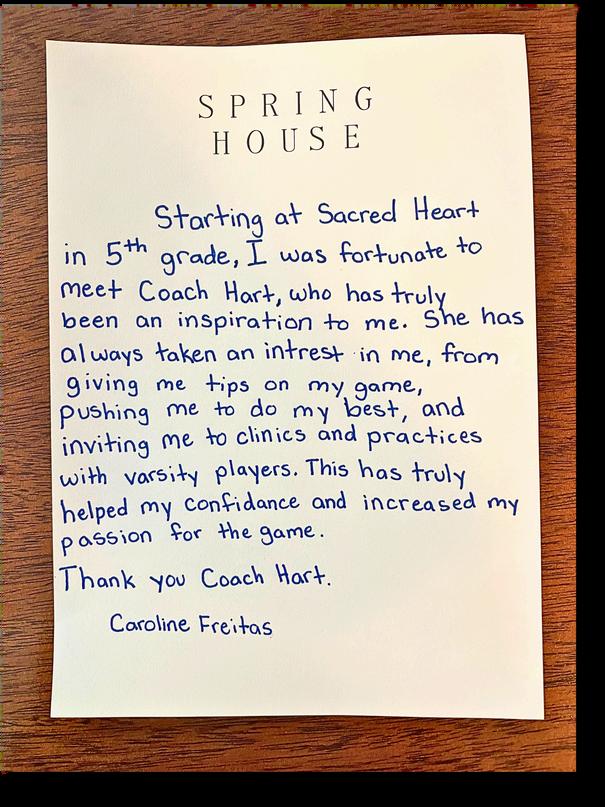 SPRING
HOUSE
Starting at Sacred Heart
in 5th grade, I was fortunate to
meet Coach Hart, who has truly
been an inspiration to me. She has
always taken an intrest in me, from
giving me tips on my game,
pushing me to do my best, and
inviting me to clinics and practices
with varsity players. This has truly
helped my confidance and increased my
passion for the game.
Thank you Coach Hart.
Caroline Freitas